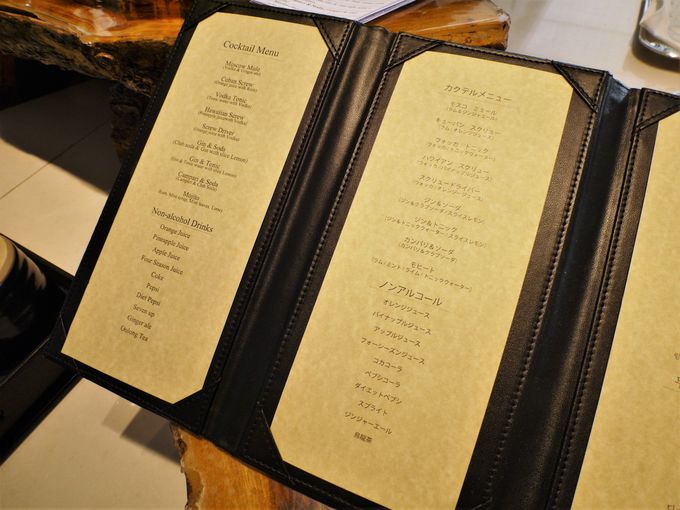 Cocktail Menu
Moscow Mule
(Vodka & Ginger ale)
Cuban Screw
(Orange juice with Rum)
Vodka Tonic
(Tonic water with Vodka)
Hawaiian Screw
(Pineapple juice with Vodka)
Screw Driver
(Orange juice with Vodka)
Gin & Soda
(Club soda & Gin with slice Lemon)
Gin & Tonic
(Gin & Tonic water with slice Lemon)
Campari & Soda
(Campari & Club Soda)
Mojito
(Rum, Mint syrup, Mint leaves, Lime)
Non-alcohol Drinks
Orange Juice
Pineapple Juice
Apple Juice
Four Season Juice
Coke
Pepsi
Diet Pepsi
Seven up
Ginger ale
Oolong Tea
カクテルメニュー
モスコ ミュール
(ラム/ジンジャエール)
キューバン スクリュー
(ラム/オレンジジュース)
ウォッカ トニック
(ウォッカ/トニックウォーター)
ハワイアン スクリュー
(ウォッカ/パイナップルジュース)
スクリュードライバー
(ウォッカ/オレンジ ジュース)
ジン&ソーダ
(ジン&クラブソーダ/スライスレモン)
ジン&トニック
(ジン&トニックウォーター/スライスレモン)
カンパリ&ソーダ
(カンパリ&クラブソーダ)
モヒート
(ラム/ミント/ライム/トニックウォーター)
ノンアルコール
オレンジジュース
パイナップルジュース
アップルジュース
フォーシーズンジュース
コカコーラ
ペプシコーラ
ダイエットペプシ
スプライト
ジンジャーエール
烏龍茶